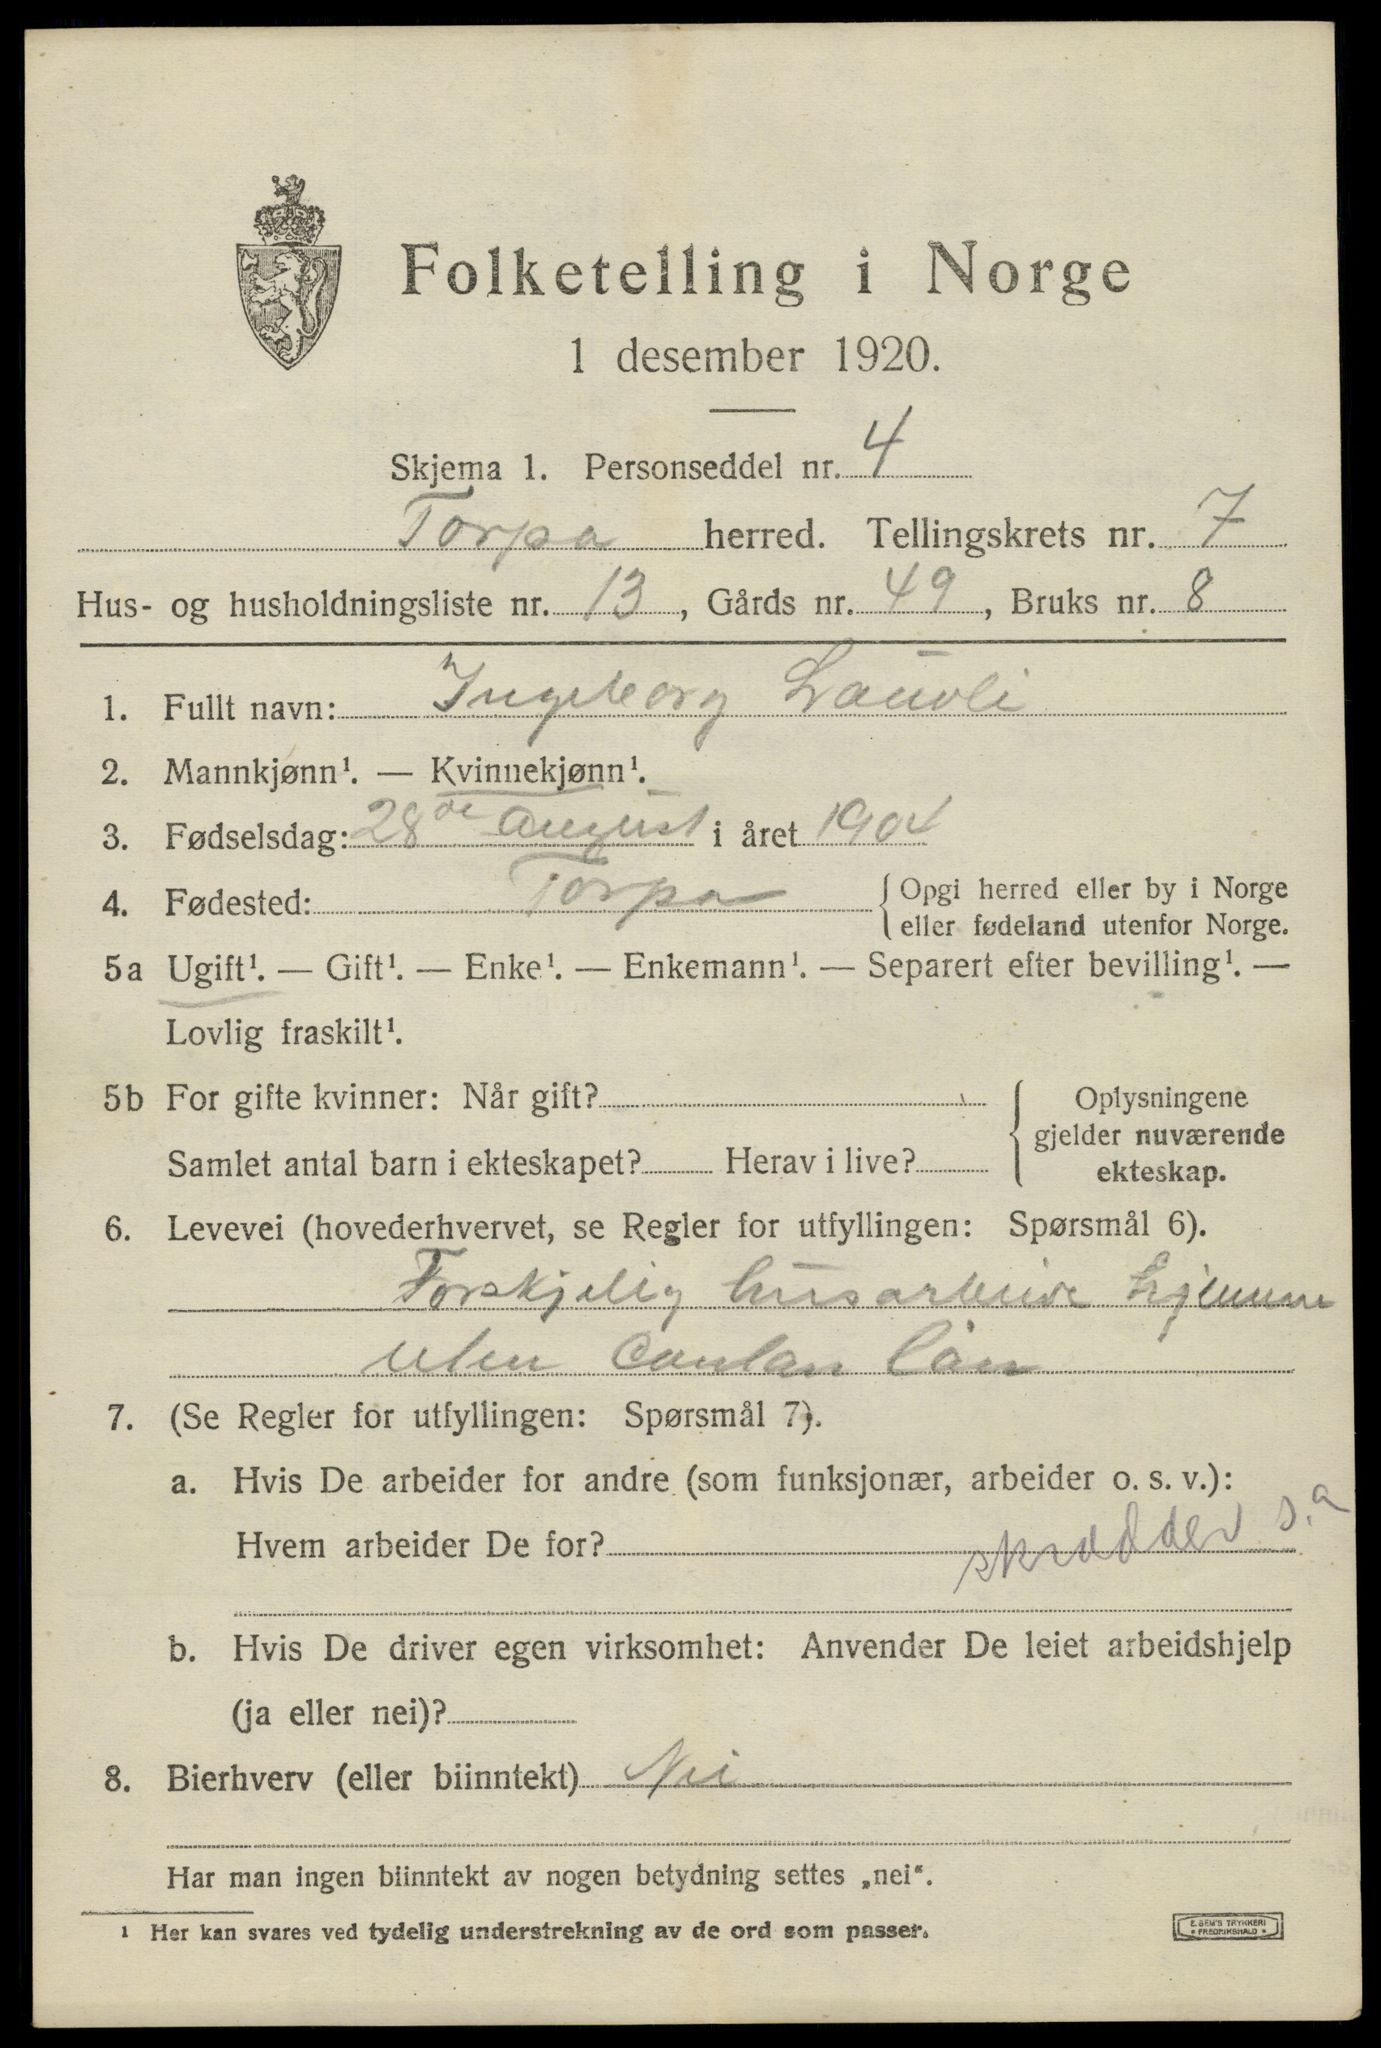 Folketelling i Norge
1 desember 1920.
Skjema 1. Personseddel nr. 4
Torpa herred. Tellingskrets nr. 7
Hus- og husholdningsliste nr. 13, Gårds nr. 49, Bruks nr. 8
1. Fullt navn: Ingeborg Lauvli
2. Mannkjønn¹. — Kvinnekjønn¹.
3. Fødselsdag: 28de august i året 1904
4. Fødested: Torpa {Opgi herred eller by i Norge
eller fødeland utenfor Norge.
5a Ugift¹. — Gift¹. — Enke¹. — Enkemann¹. — Separert efter bevilling¹. —
Lovlig fraskilt¹.
5b For gifte kvinner: Når gift?
Samlet antal barn i ekteskapet? Herav i live?
{Oplysningene
gjelder nuværende
ekteskap.
6. Levevei (hovederhvervet, se Regler for utfyllingen: Spørsmål 6).
Forskjelig husarbeide hjemme
uten contan løn
7. (Se Regler for utfyllingen: Spørsmål 7).
a. Hvis De arbeider for andre (som funksjonær, arbeider o. s. v.):
Hvem arbeider De for? skrædder s.a
b. Hvis De driver egen virksomhet: Anvender De leiet arbeidshjelp
(ja eller nei)?
8. Bierhverv (eller biinntekt) Nei
Har man ingen biinntekt av nogen betydning settes „nei“.
¹ Her kan svares ved tydelig understrekning av de ord som passer.
E. SEM'S TRYKKERI
* FREDRIKSHALD *